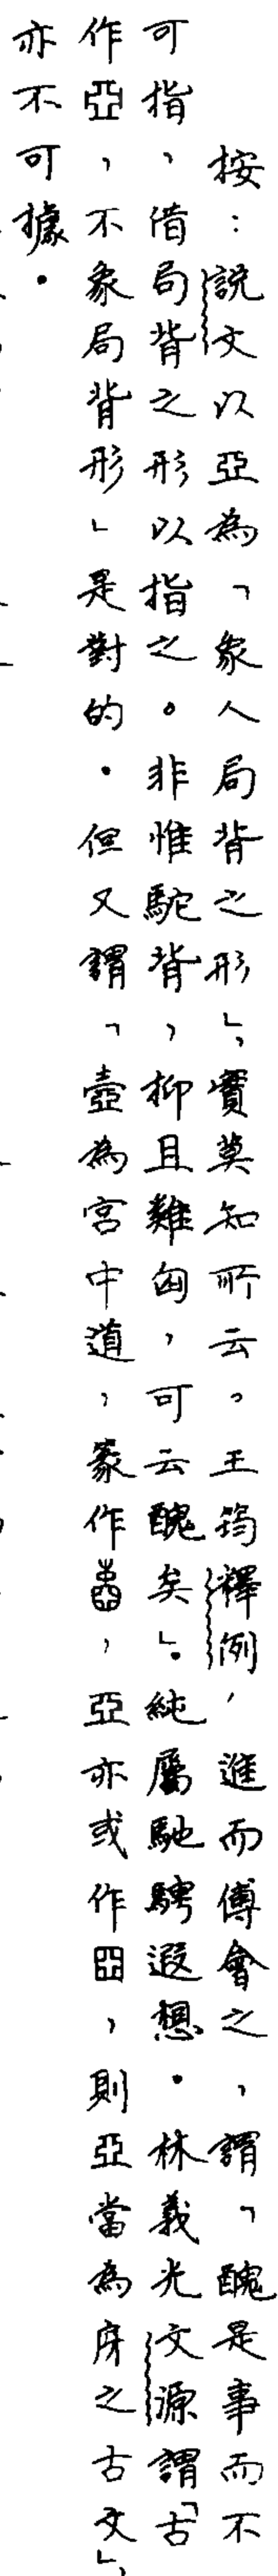 按：說文以亞為「象人局背之形」，實莫知所云。王筠釋例，進而傅會之，謂「醜是事而不
可指，借局背之形以指之。非惟駝背，抑且雞匈，可云醜矣」。純屬馳騁遐想．林義光文源謂「古
作亞，不象局背形」是對的．但又謂「壼為宮中道，篆作，亞亦或作，則亞當為庌之古文」，
亦不可據．